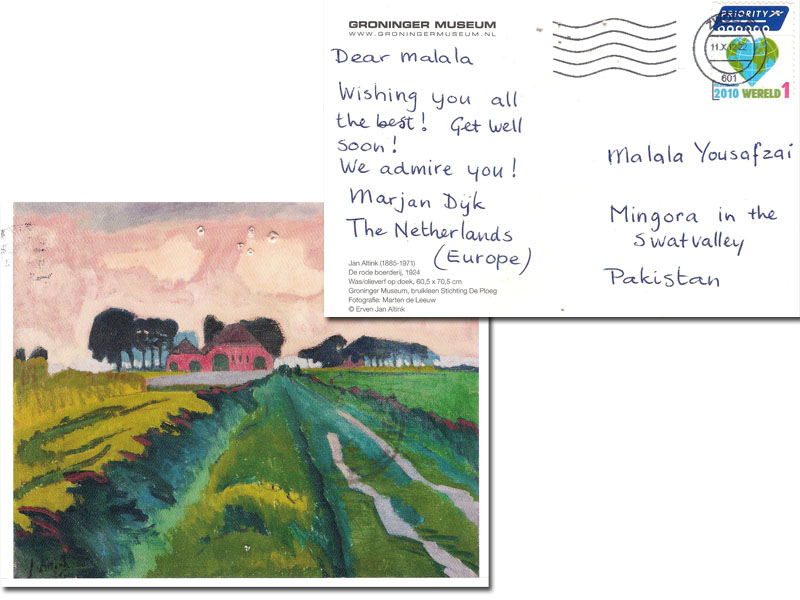 GRONINGER MUSEUM
WWW.GRONINGERMUSEUM.NL
Dear Malala
Wishing you all
the best! Get well
soon!
We admire you!
Marjan Dijk
The Netherlands
(Europe)
Jan Altink (1885-1971)
De rode boerderij, 1924
Was/olieverf op doek, 60,5 x 70,5 cm
Groninger Museum, bruikleen Stichting De Ploeg
Fotografie: Marten de Leeuw
© Erven Jan Altink
PRIORITY
601
2010 WERELD 1
Malala Yousafzai
Mingora in the
Swatvalley
Pakistan